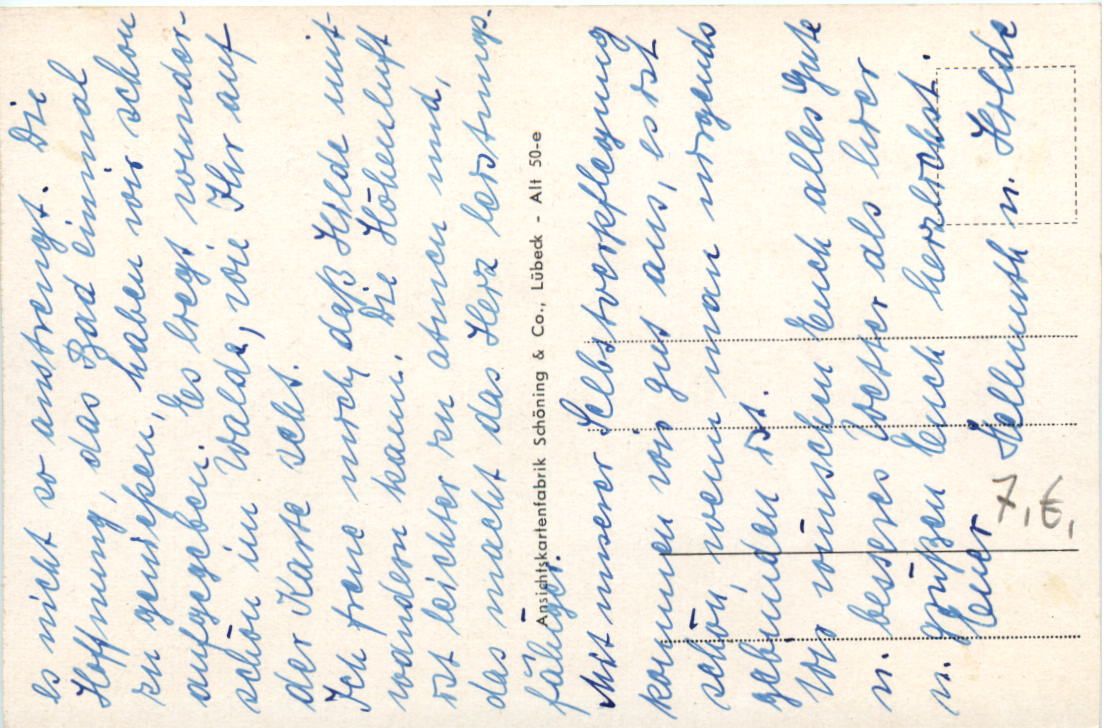 es nicht so anstrengt. Die
Hoffnung, das Bad einmal
zu genießen, haben wir schon
aufgegeben. Es liegt wunder-
schön im Walde, wie Ihr auf
der Karte seht.
Ich freue mich, daß Hilde mit-
wandern kann. Die Höhenluft
ist leichter zu atmen und,
das macht das Herz leistungs-
fähiger.
Ansichtskartenfabrik Schöning & Co., Lübeck - Alt 50-e
Mit unserer Selbstverpflegung
kommen wir gut aus, es ist
schön, wenn man nirgends
gebunden ist.
Wir wünschen Euch alles Gute
u. besseres Wetter als hier
u. grüßen Euch herzlichst.
Euer Hellmuth u. Hilde
7,€,